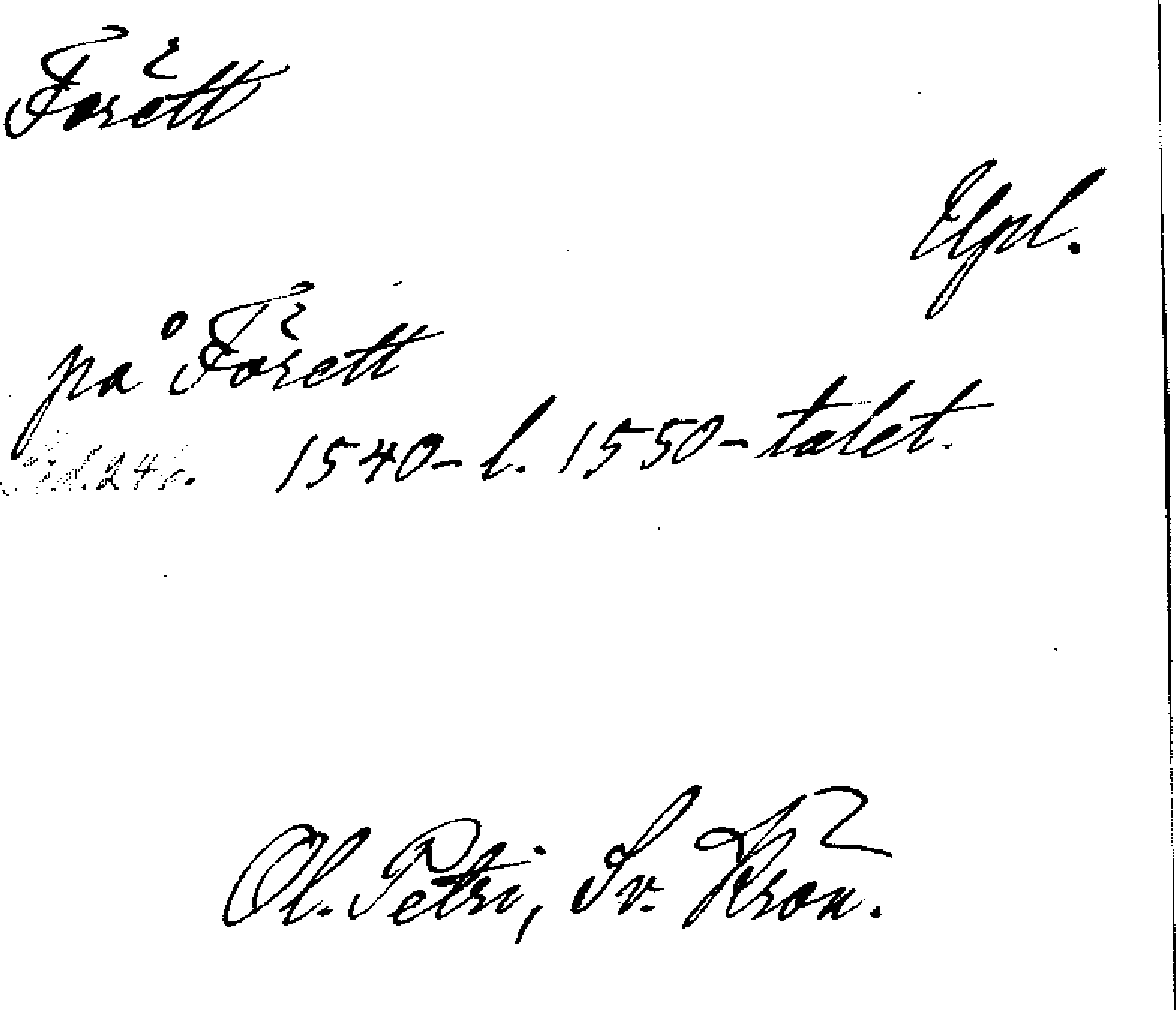 Förett
Upl.
på Förett
1540- l. 1550-talet.
Ol. Petri, Sv. Krön.